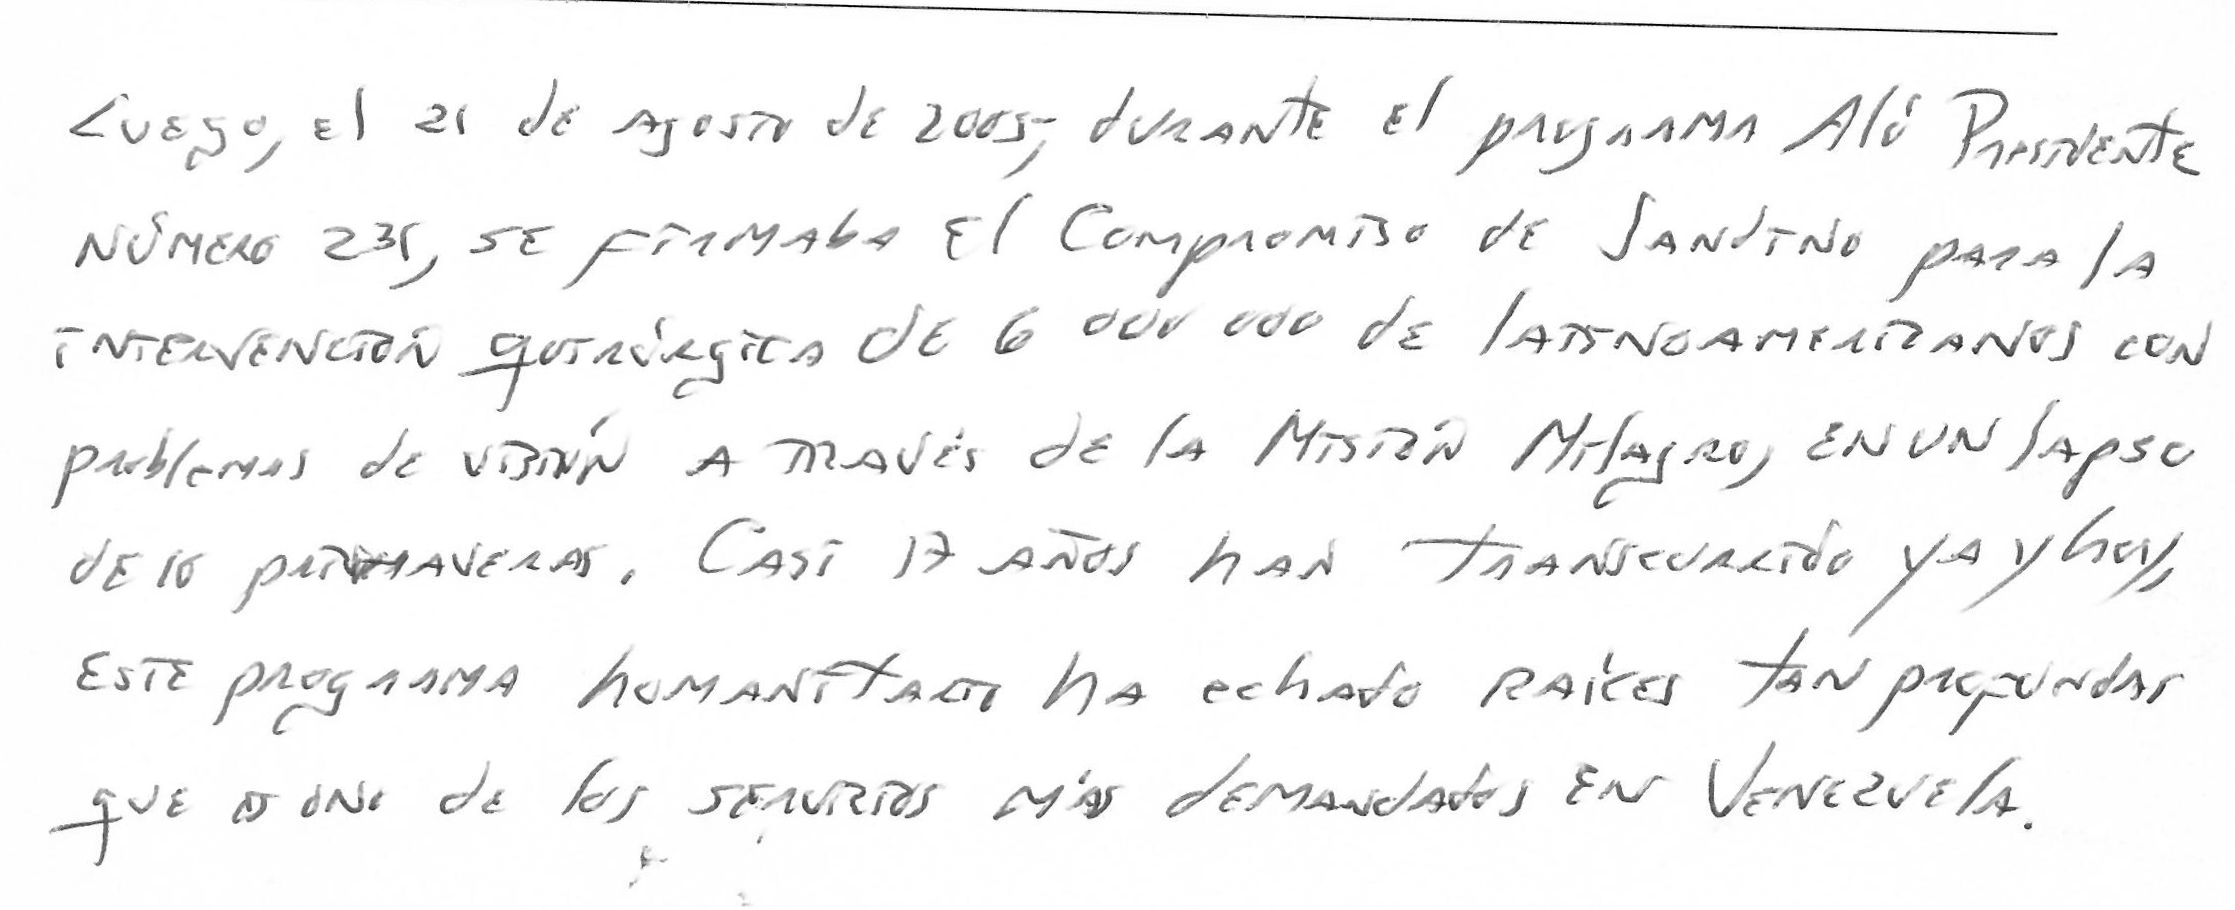 Luego, el 21 de agosto de 2005, durante el programa Aló Presidente
número 231, se firmaba el Compromiso de Sandino para la
intervención quirúrgica de 6 000 000 de latinoamericanos con
problemas de visión a través de la Misión Milagro, en un lapso
de 10 primaveras. Casi 17 años han transcurrido ya y hoy,
este programa humanitario ha echado raíces tan profundas
que es uno de los servicios más demandados en Venezuela.